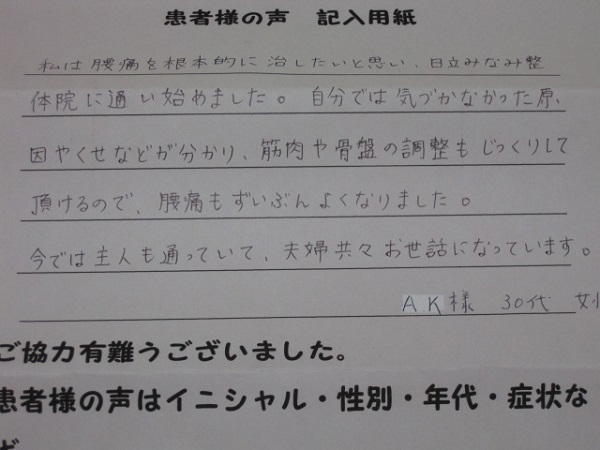 患者様の声　記入用紙
私は腰痛を根本的に治したいと思い、日立みなみ整
体院に通い始めました。自分では気づかなかった原、
因やくせなどが分かり、筋肉や骨盤の調整もじっくりして
頂けるので、腰痛もずいぶんよくなりました。
今では主人も通っていて、夫婦共々お世話になっています。
AK様　30代　女性
ご協力有難うございました。
患者様の声はイニシャル・性別・年代・症状な
ど